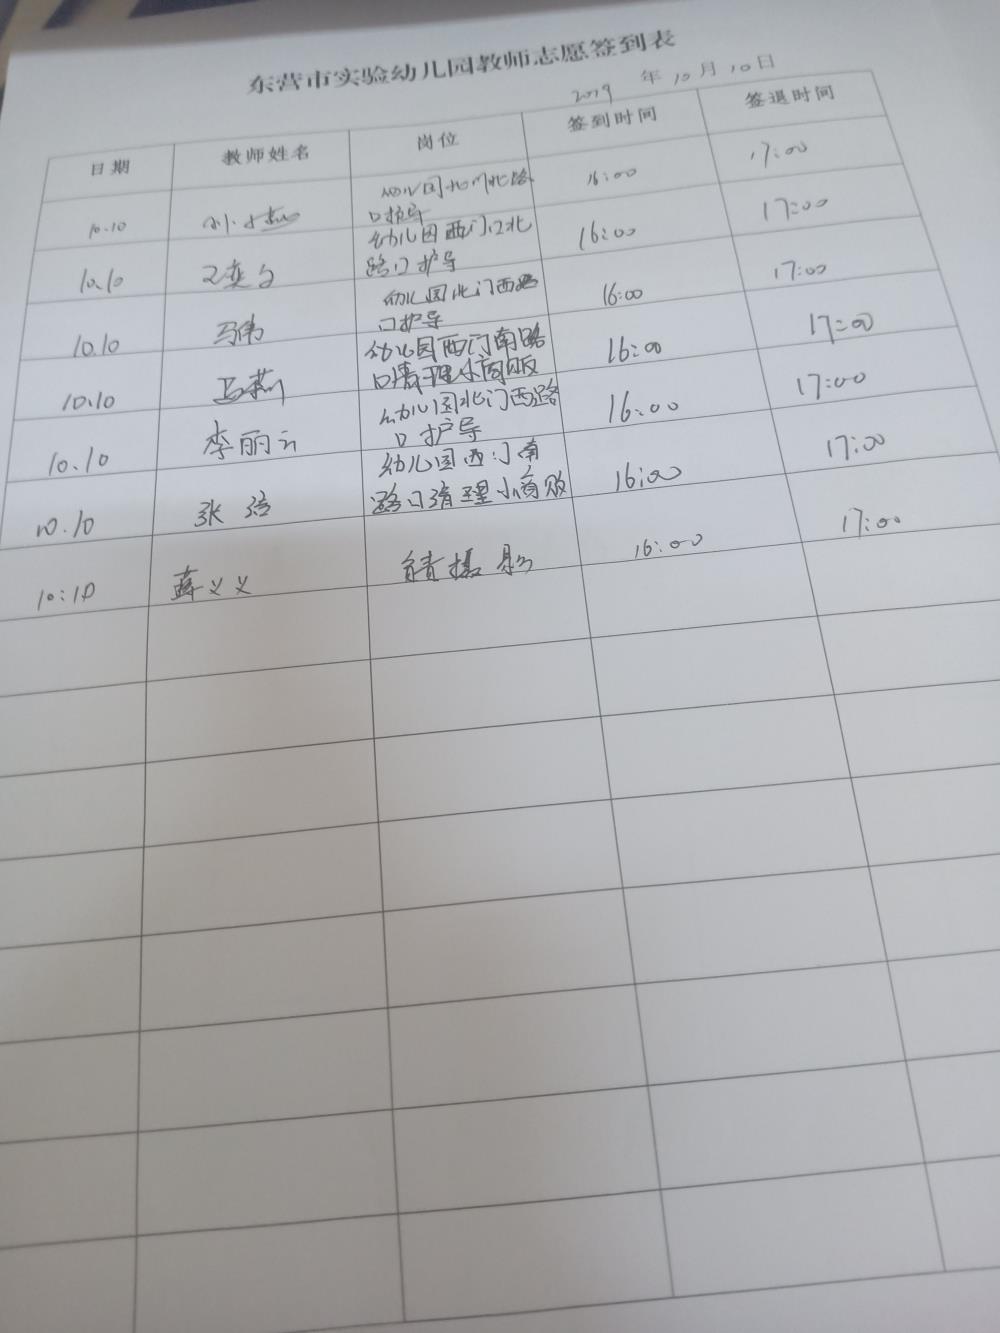 东营市实验幼儿园教师志愿签到表
2019 年 10 月 10 日
日期 教师姓名 岗位 签到时间 签退时间
10.10 幼儿园北门北路 16:00 17:00
口护导
10.10 幼儿园西门口北 16:00 17:00
路口护导
10.10 马伟 幼儿园北门西路 16:00 17:00
口护导
10.10 马莉 幼儿园西门南路 16:00 17:00
口清理小商贩
10.10 李丽云 幼儿园北门西路 16:00 17:00
口护导
10.10 张 幼儿园西门南 16:00 17:00
路口清理小商贩
10:10 蒋义义 摄影 16:00 17:00